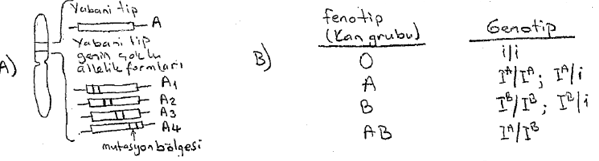 A)
Yabani tip
A
Yabani tip
genin çoklu
allelik formları
A1
A2
A3
A4
mutasyon bölgesi
B)
fenotip
(Kan grubu)
Genotip
O
i/i
A
I^A/I^A ; I^A/i
B
I^B/I^B ; I^B/i
AB
I^A/I^B